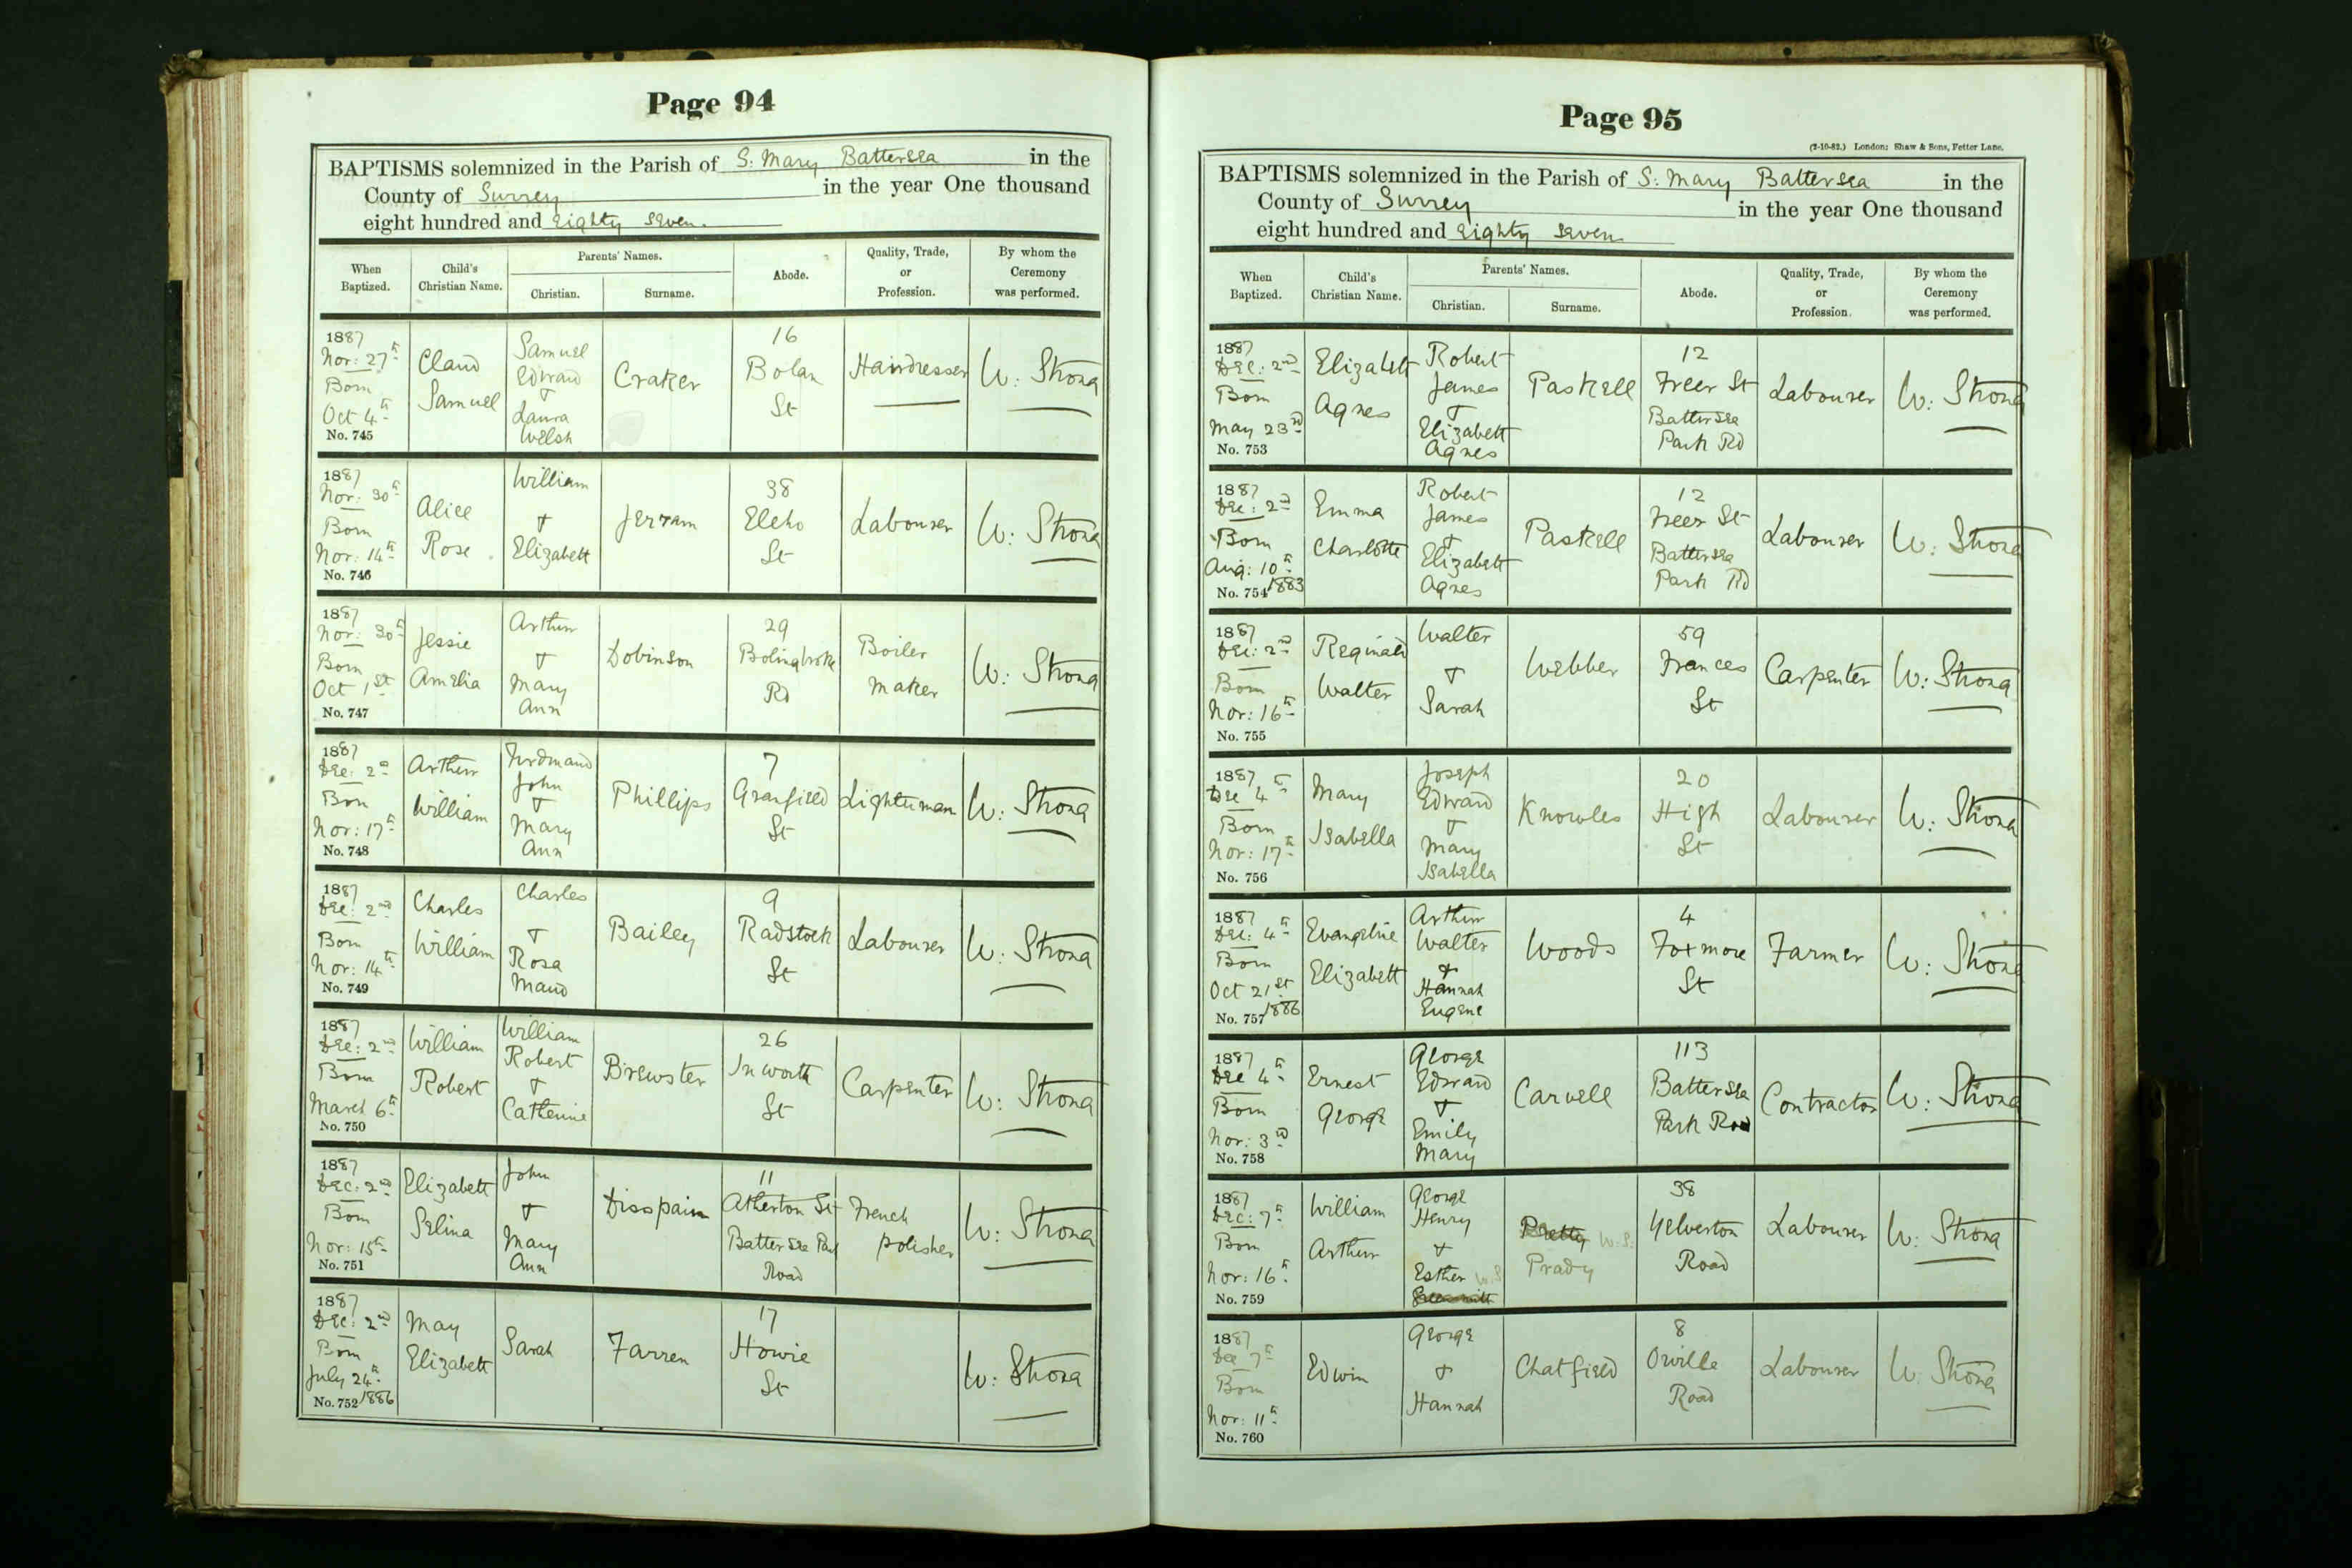 Page 94
BAPTISMS solemnized in the Parish of S: Mary Battersea in the
County of Surrey in the year One thousand
eight hundred and eighty seven.
When Baptized.
Child's Christian Name.
Parents' Names.
Christian.
Surname.
Abode.
Quality, Trade, or Profession.
By whom the Ceremony was performed.
1887
Nov: 27th
Born
Oct 4th
No. 745
Claud
Samuel
Samuel
Edward
+
Laura
Welsh
Craker
16
Bolan
St
Hairdresser
W: Strong
1887
Nov: 30th
Born
Nov: 14th
No. 746
Alice
Rose
William
+
Elizabeth
Jerram
38
Elcho
St
Labourer
W: Strong
1887
Nov: 30th
Born
Oct 1st
No. 747
Jessie
Amelia
Arthur
+
Mary
Ann
Dobinson
29
Bolingbroke
Rd
Boiler
maker
W: Strong
1887
Dec: 2nd
Born
Nov: 17th
No. 748
Arthur
William
Ferdinand
John
+
Mary
Ann
Phillips
7
Granfield
St
Lighterman
W: Strong
1887
Dec: 2nd
Born
Nov: 14th
No. 749
Charles
William
Charles
+
Rosa
Maud
Bailey
9
Radstock
St
Labourer
W: Strong
1887
Dec: 2nd
Born
March 6th
No. 750
William
Robert
William
Robert
+
Catherine
Brewster
26
Inworth
St
Carpenter
W: Strong
1887
Dec: 2nd
Born
Nov: 15th
No. 751
Elizabeth
Selina
John
+
Mary
Ann
Disspain
11
Atherton St
Battersea Park
Road
French
polisher
W: Strong
1887
Dec: 2nd
Born
July 24th
No. 752 1886
May
Elizabeth
Sarah
Farren
17
Howie
St
W: Strong
Page 95
(2-10-82.) London: Shaw & Sons, Fetter Lane.
BAPTISMS solemnized in the Parish of S: Mary Battersea in the
County of Surrey in the year One thousand
eight hundred and eighty seven
When Baptized.
Child's Christian Name.
Parents' Names.
Christian.
Surname.
Abode.
Quality, Trade, or Profession.
By whom the Ceremony was performed.
1887
Dec: 2nd
Born
May 23rd
No. 753
Elizabeth
Agnes
Robert
James
+
Elizabeth
Agnes
Paskell
12
Freer St
Battersea
Park Rd
Labourer
W: Strong
1887
Dec: 2nd
Born
Aug: 10th
No. 754 1883
Emma
Charlotte
Robert
James
+
Elizabeth
Agnes
Paskell
12
Freer St
Battersea
Park Rd
Labourer
W: Strong
1887
Dec: 2nd
Born
Nov: 16th
No. 755
Reginald
Walter
Walter
+
Sarah
Webber
59
Frances
St
Carpenter
W: Strong
1887
Dec 4th
Born
Nov: 17th
No. 756
Mary
Isabella
Joseph
Edward
+
Mary
Isabella
Knowles
20
High
St
Labourer
W: Strong
1887
Dec: 4th
Born
Oct 21st
No. 757 1886
Evangeline
Elizabeth
Arthur
Walter
+
Hannah
Eugene
Woods
4
Foxmore
St
Farmer
W: Strong
1887
Dec 4th
Born
Nov: 3rd
No. 758
Ernest
George
George
Edward
+
Emily
Mary
Carvell
113
Battersea
Park Road
Contractor
W: Strong
1887
Dec: 7th
Born
Nov: 16th
No. 759
William
Arthur
George
Henry
+
Esther W.S
Pretty W.S.
Prady
38
Yelverton
Road
Labourer
W: Strong
1887
Dec 7th
Born
Nov: 11th
No. 760
Edwin
George
+
Hannah
Chatfield
8
Orville
Road
Labourer
W: Strong